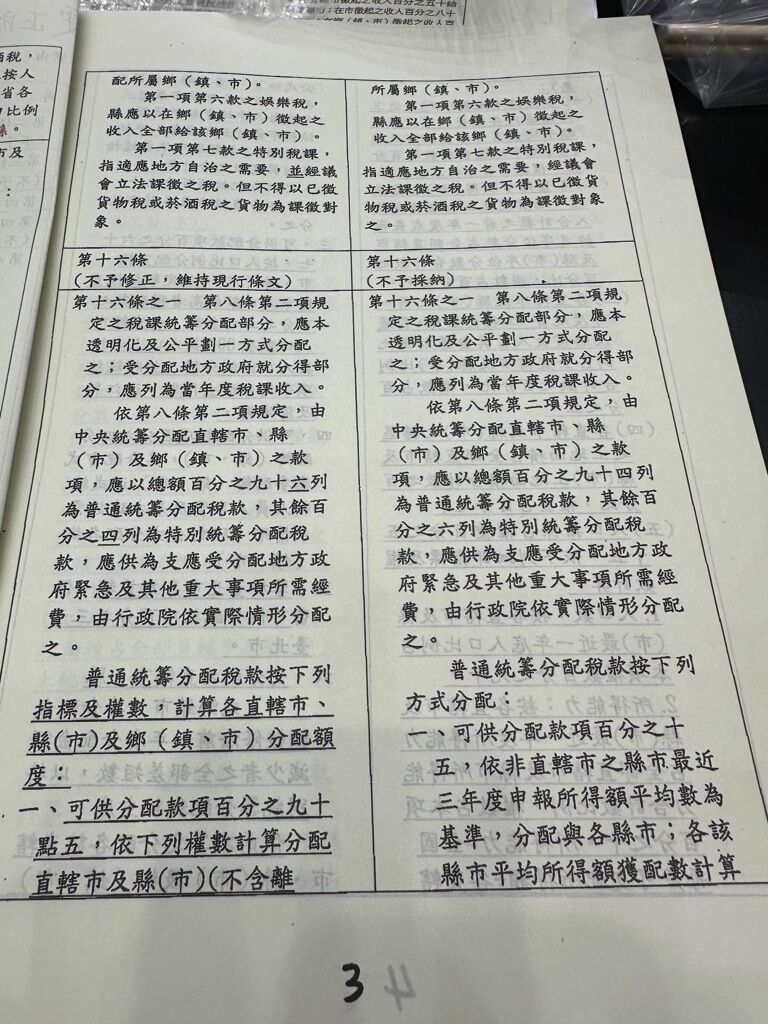 酒稅，
按人
省各
比例
縣。
市及
配所屬鄉（鎮、市）。
第一項第六款之娛樂稅，
縣應以在鄉（鎮、市）徵起之
收入全部給該鄉（鎮、市）。
第一項第七款之特別稅課，
指適應地方自治之需要，並經議
會立法課徵之稅。但不得以已徵
貨物稅或菸酒稅之貨物為課徵對
象。
第十六條
(不予修正，維持現行條文)
第十六條之一　第八條第二項規
定之稅課統籌分配部分，應本
透明化及公平劃一方式分配
之；受分配地方政府就分得部
分，應列為當年度稅課收入。
依第八條第二項規定，由
中央統籌分配直轄市、縣
（市）及鄉（鎮、市）之款
項，應以總額百分之九十六列
為普通統籌分配稅款，其餘百
分之四列為特別統籌分配稅
款，應供為支應受分配地方政
府緊急及其他重大事項所需經
費，由行政院依實際情形分配
之。
普通統籌分配稅款按下列
指標及權數，計算各直轄市、
縣(市)及鄉（鎮、市）分配額
度：
一、可供分配款項百分之九十
點五，依下列權數計算分配
直轄市及縣(市)(不含離
所屬鄉（鎮、市）。
第一項第六款之娛樂稅，
縣應以在鄉（鎮、市）徵起之
收入全部給該鄉（鎮、市）。
第一項第七款之特別稅課，
指適應地方自治之需要，經議會
立法課徵之稅。但不得以已徵貨
物稅或菸酒稅之貨物為課徵對象
之。
第十六條
(不予採納)
第十六條之一　第八條第二項規
定之稅課統籌分配部分，應本
透明化及公平劃一方式分配
之；受分配地方政府就分得部
分，應列為當年度稅課收入。
依第八條第二項規定，由
中央統籌分配直轄市、縣
（市）及鄉（鎮、市）之款
項，應以總額百分之九十四列
為普通統籌分配稅款，其餘百
分之六列為特別統籌分配稅
款，應供為支應受分配地方政
府緊急及其他重大事項所需經
費，由行政院依實際情形分配
之。
普通統籌分配稅款按下列
方式分配：
一、可供分配款項百分之十
五，依非直轄市之縣市最近
三年度申報所得額平均數為
基準，分配與各縣市；各該
縣市平均所得額獲配數計算
3